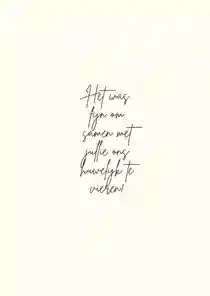 Het was
fijn om
samen met
jullie ons
huwelijk te
vieren!